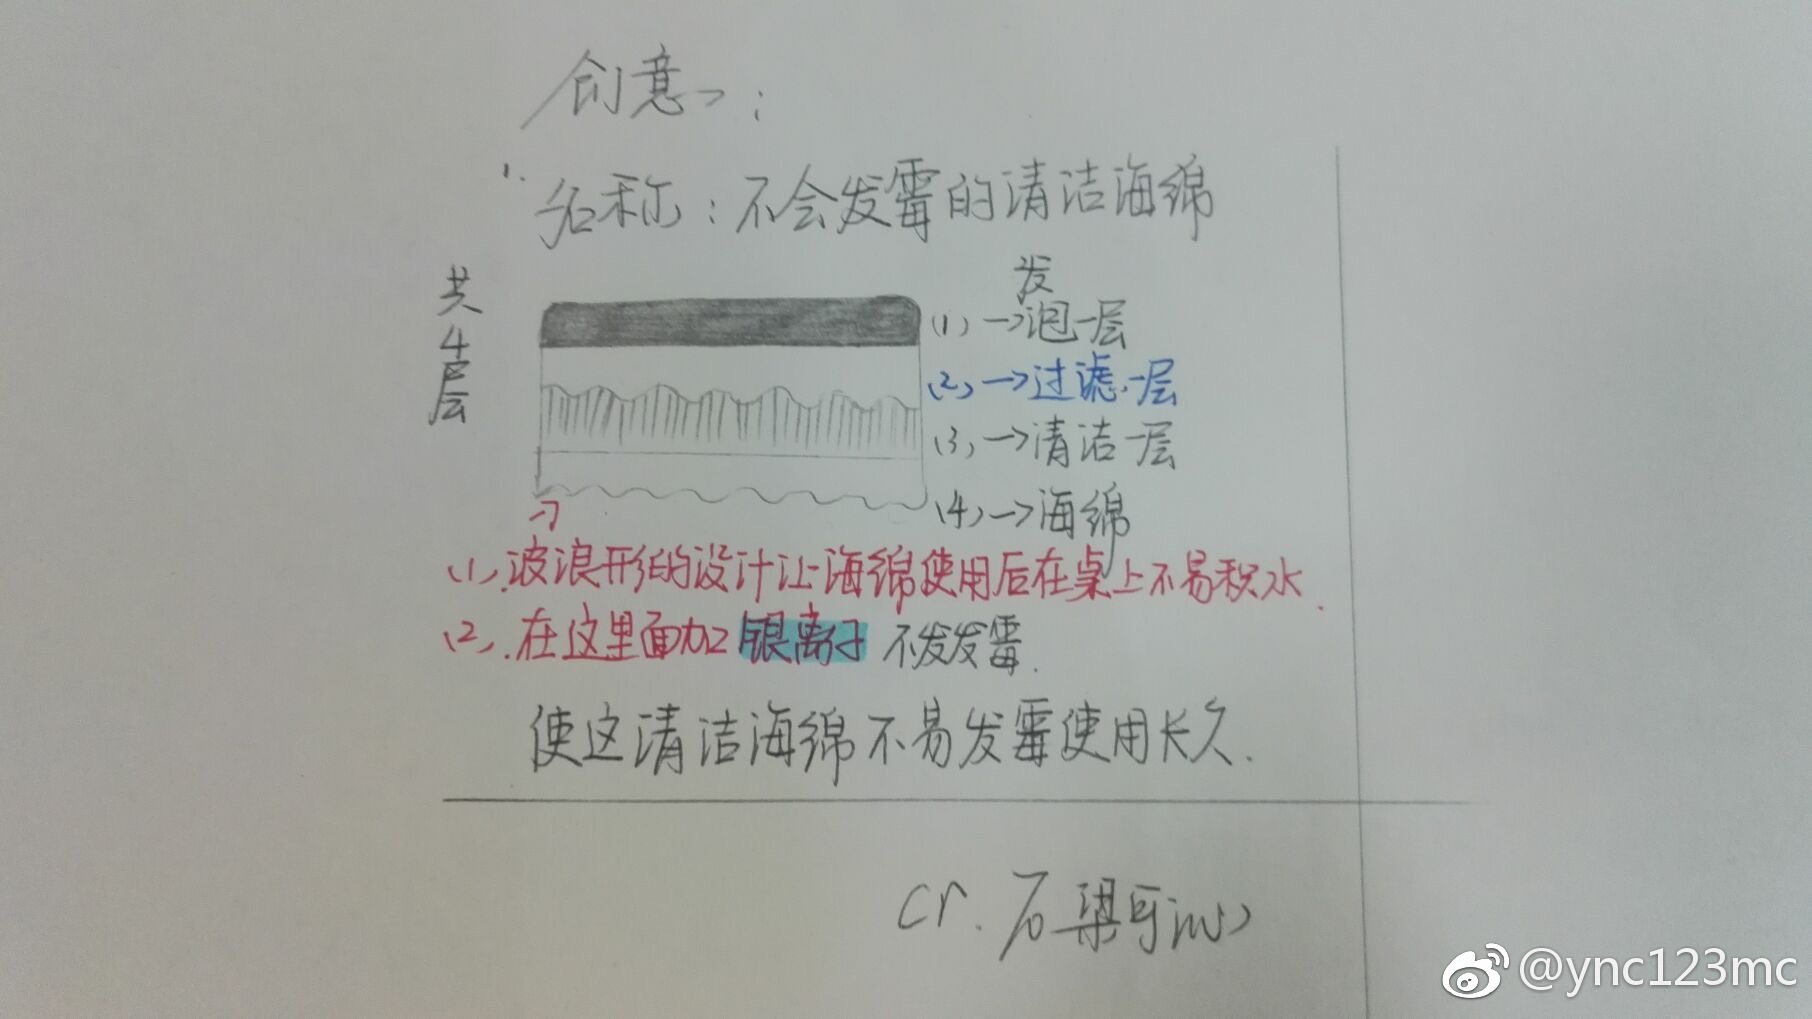 创意
1.
名称：不会发霉的清洁海绵
共4层
发
(1)→泡一层
(2)→过滤一层
(3)→清洁一层
(4)→海绵
(1).波浪形的设计让海绵使用后在桌上不易积水.
(2).在这里面加银离子 不发发霉.
使这清洁海绵不易发霉使用长久.
cr.石梁
@ync123mc